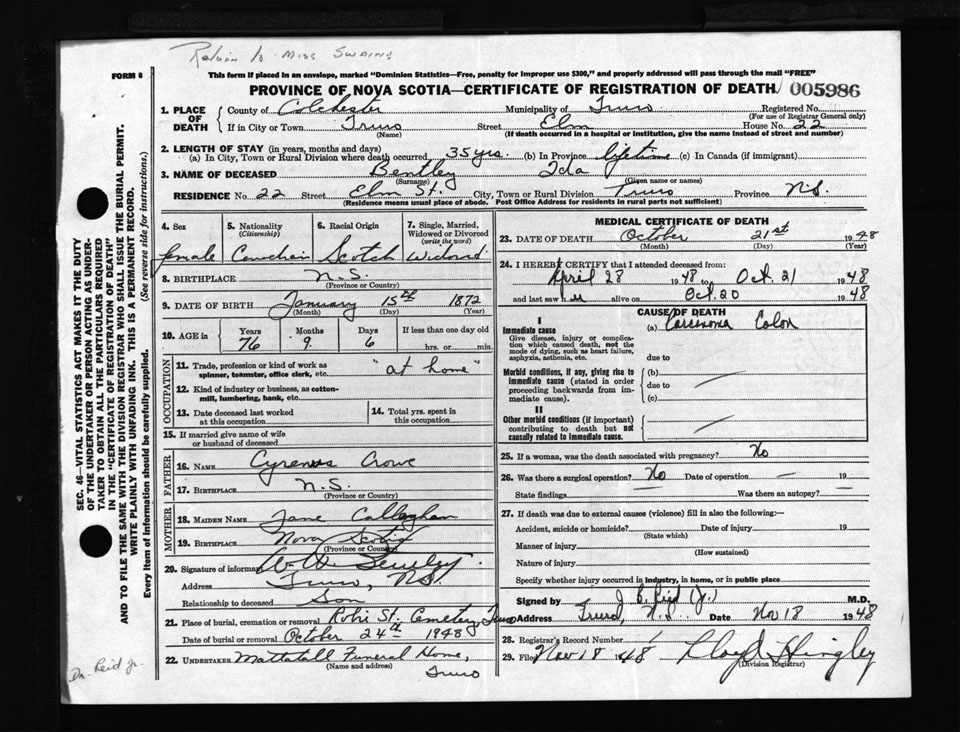 Return to Miss Swaine
FORM 6
This form if placed in an envelope, marked "Dominion Statistics—Free, penalty for improper use $300," and properly addressed will pass through the mail "FREE"
PROVINCE OF NOVA SCOTIA—CERTIFICATE OF REGISTRATION OF DEATH 005986
1. PLACE OF DEATH
County of Colchester Municipality of Truro Registered No.
(For use of Registrar General only)
If in City or Town Truro Street Elm House No. 22
(Name) (If death occurred in a hospital or institution, give the name instead of street and number)
2. LENGTH OF STAY (in years, months and days)
(a) In City, Town or Rural Division where death occurred 35 yrs. (b) In Province lifetime (c) In Canada (if immigrant)
3. NAME OF DECEASED Bentley Ida
(Surname) (Given name or names)
RESIDENCE No. 22 Street Elm St. City, Town or Rural Division Truro Province N.S.
(Residence means usual place of abode. Post Office Address for residents in rural parts not sufficient)
4. Sex female
5. Nationality (Citizenship) Canadian
6. Racial Origin Scotch
7. Single, Married, Widowed or Divorced (write the word) Widowed
8. BIRTHPLACE N.S.
(Province or Country)
9. DATE OF BIRTH January 15th 1872
(Month) (Day) (Year)
10. AGE in Years 76 Months 9 Days 6 If less than one day old hrs. or min.
OCCUPATION
11. Trade, profession or kind of work as spinner, teamster, office clerk, etc. "at home"
12. Kind of industry or business, as cotton-mill, lumbering, bank, etc.
13. Date deceased last worked at this occupation
14. Total yrs. spent in this occupation
15. If married give name of wife or husband of deceased
FATHER
16. NAME Cyrenus Crowe
17. BIRTHPLACE N.S.
(Province or Country)
MOTHER
18. MAIDEN NAME Jane Callaghan
19. BIRTHPLACE Nova Scotia
(Province or Country)
20. Signature of informant
Address Truro, N.S.
Relationship to deceased Son
21. Place of burial, cremation or removal Robie St. Cemetery Truro
Date of burial or removal October 24th 1948
22. UNDERTAKER Mattatall Funeral Home,
(Name and address) Truro
MEDICAL CERTIFICATE OF DEATH
23. DATE OF DEATH October 21st 1948
(Month) (Day) (Year)
24. I HEREBY CERTIFY that I attended deceased from:
April 28 1948 to Oct. 21 1948
and last saw alive on Oct. 20 1948
CAUSE OF DEATH
I
Immediate cause
Give disease, injury or complication which caused death, not the mode of dying, such as heart failure, asphyxia, asthenia, etc.
(a) Carcinoma Colon
due to
Morbid conditions, if any, giving rise to immediate cause (stated in order proceeding backwards from immediate cause).
(b)
due to
(c)
II
Other morbid conditions (if important) contributing to death but not causally related to immediate cause.
25. If a woman, was the death associated with pregnancy? No
26. Was there a surgical operation? No Date of operation 19
State findings Was there an autopsy?
27. If death was due to external causes (violence) fill in also the following:—
Accident, suicide or homicide? Date of injury 19
(State which)
Manner of injury
(How sustained)
Nature of injury
Specify whether injury occurred in industry, in home, or in public place
Signed by J. B. Reid (Jr.) M.D.
Address Truro, N.S. Date Nov 18 1948
28. Registrar's Record Number 1
29. Filed Nov 18 1948 Lloyd Hingley
(Division Registrar)
SEC. 46—VITAL STATISTICS ACT MAKES IT THE DUTY
OF THE UNDERTAKER OR PERSON ACTING AS UNDER-
TAKER TO OBTAIN ALL THE PARTICULARS REQUIRED
IN THE "CERTIFICATE OF REGISTRATION OF DEATH"
AND TO FILE THE SAME WITH THE DIVISION REGISTRAR WHO SHALL ISSUE THE BURIAL PERMIT.
WRITE PLAINLY WITH UNFADING INK. THIS IS A PERMANENT RECORD.
Every item of information should be carefully supplied. (See reverse side for instructions.)
Dr. Reid Jr.